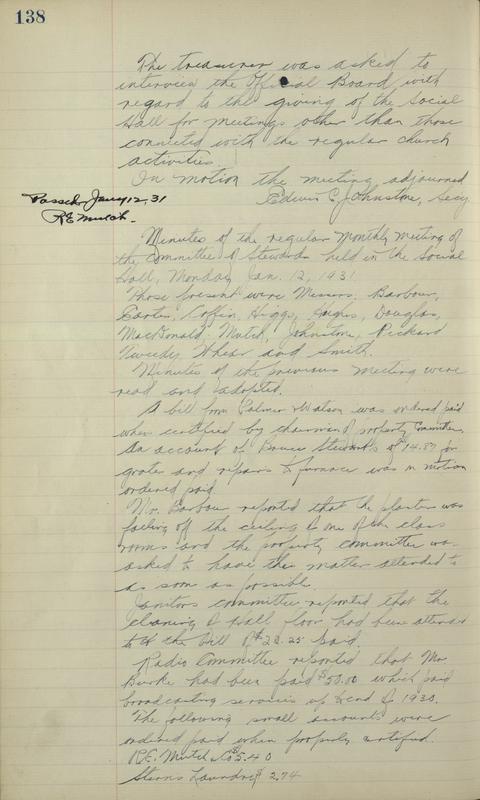 138
The treasurer was asked to
interview the Official Board with
regard to the giving of the Social
Hall for meetings other than those
connected with the regular church
activities.
On motion the meeting adjourned
Passed Jany 12, 31
Edwin C. Johnstone, Secy
R.E. Mutch.
Minutes of the regular monthly meeting of
the Committee of Stewards held in the Social
Hall, Monday Jan. 12, 1931
Those present were Messrs. Barbour,
Carter, Coffin, Higgs, Hughes, Douglas,
MacDonald, Mutch, Johnstone, Pickard
Tweedy, Whear and Smith.
Minutes of the previous meeting were
read and adopted.
A bill from Palmer & Watson was ordered paid
when certified by chairman of property Committee
An account of Bruce Stewart's of 14.87 for
grates and repairs to furnace was on motion
ordered paid
Mr. Barbour reported that the plaster was
falling off the ceiling of one of the class
rooms and the property committee was
asked to have this matter attended to
as soon as possible.
Janitors committee reported that the
cleaning of Hall floor had been attended
to & the bill of $28.25 paid.
Radio Committee reported that Mr.
Burke had been paid $50.00 which paid
broadcasting services up to end of 1930.
The following small accounts were
ordered paid when properly certified.
R.E. Mutch Co $5.40
Sterns Laundry $2.74